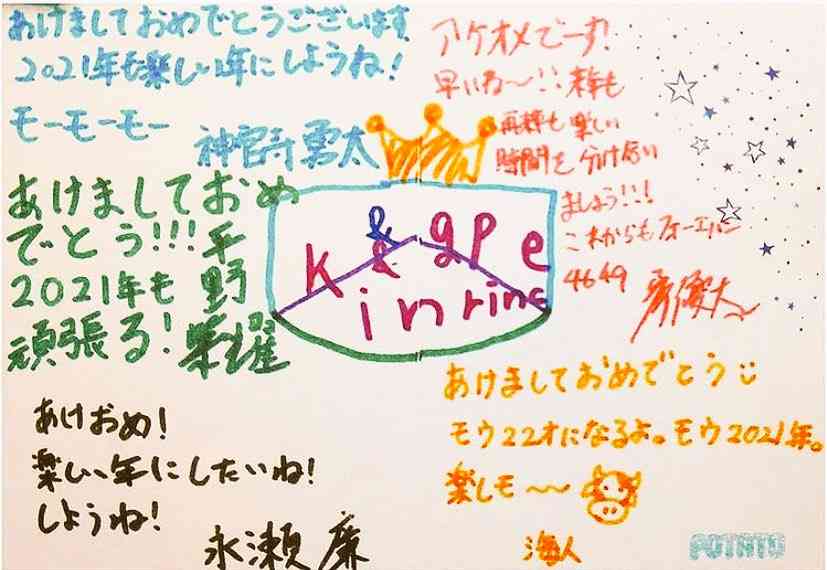 あけましておめでとうございます
2021年も楽しい年にしようね!
モーモーモー
神宮寺勇太
アケオメでーす!
早いね〜!! 来年も
再縁も楽しい
時間を分け合い
ましょう!!!
これからもフォーエバー
4649
あけましておめ
でとう!!!
2021年も
頑張る!
平野紫耀
K & g p e
i n rinc
あけおめ!
楽しい年にしたいね!
しようね!
永瀬廉
あけましておめでとう
モウ22才になるよ。モウ2021年。
楽しモ〜〜
海人
POTATO